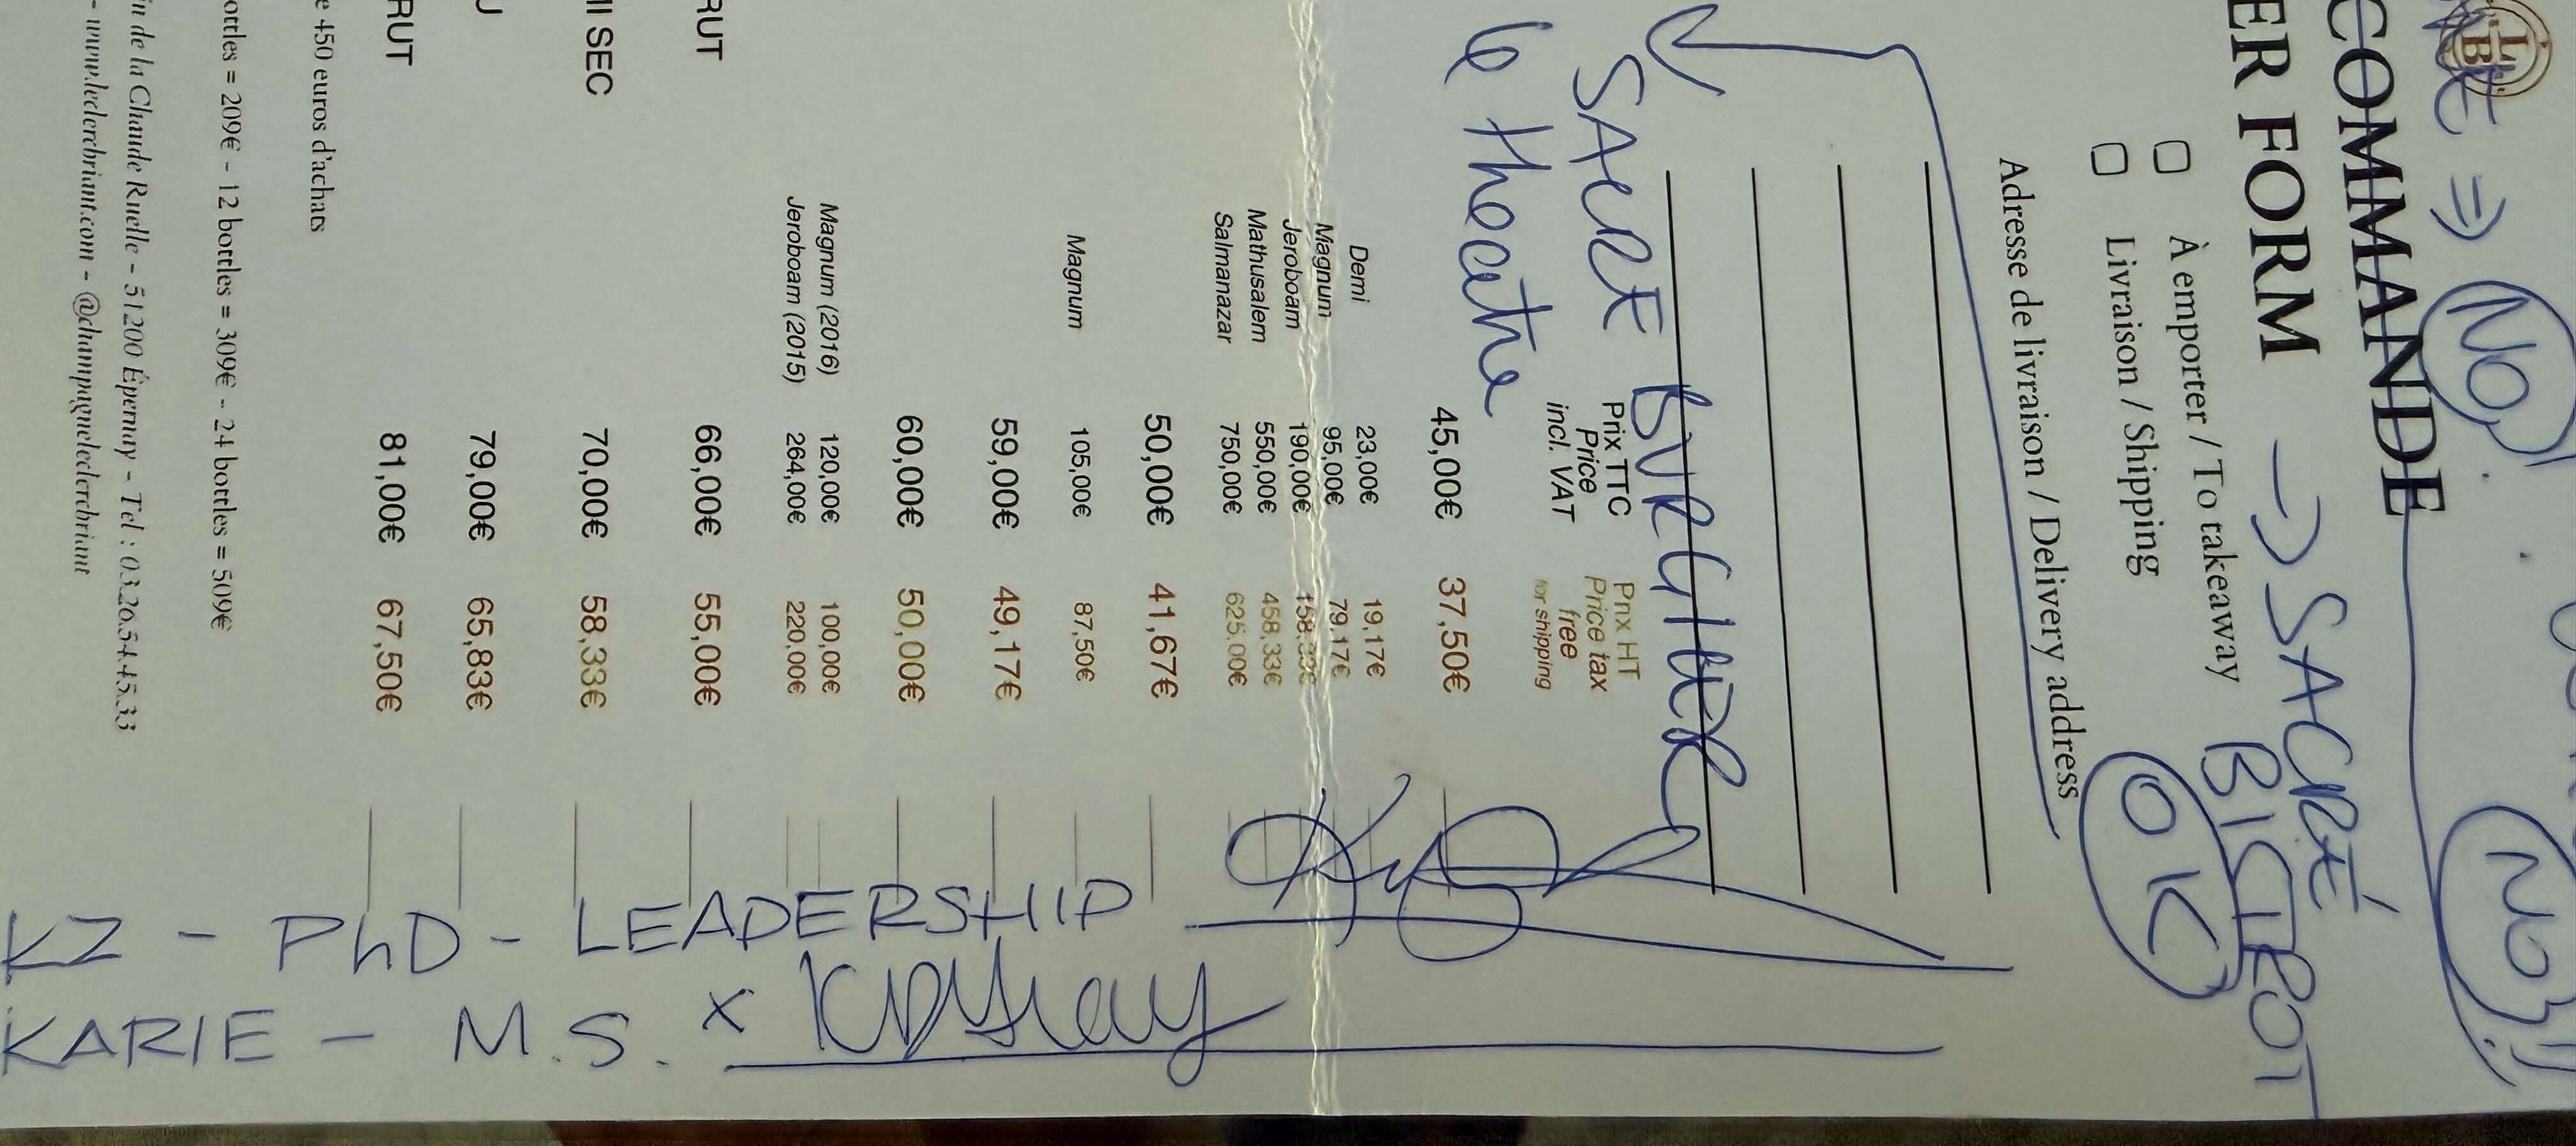 LB
⇒ NO,
NO!!
COMMANDE
ER FORM → SACRÉ
BISTROT
OK
☐ À emporter / To takeaway
☐ Livraison / Shipping
Adresse de livraison / Delivery address
SACRE BURGUER
le theatre
Prix TTC Prix HT
Price Price tax
incl. VAT free
for shipping
45,00€ 37,50€
Demi 23,00€ 19,17€
Magnum 95,00€ 79,17€
Jeroboam 190,00€ 158,33€
Mathusalem 550,00€ 458,33€
Salmanazar 750,00€ 625,00€
50,00€ 41,67€
Magnum 105,00€ 87,50€
59,00€ 49,17€
60,00€ 50,00€
Magnum (2016) 120,00€ 100,00€
Jeroboam (2015) 264,00€ 220,00€
RUT 66,00€ 55,00€
II SEC 70,00€ 58,33€
U 79,00€ 65,83€
RUT 81,00€ 67,50€
e 450 euros d'achats
ottles = 209€ - 12 bottles = 309€ - 24 bottles = 509€
in de la Chaude Ruelle - 51200 Épernay - Tel : 03.26.54.45.33
- www.leclercbriant.com - @champagneleclercbriant
KZ - PhD - LEADERSHIP
KARIE - M.S. x